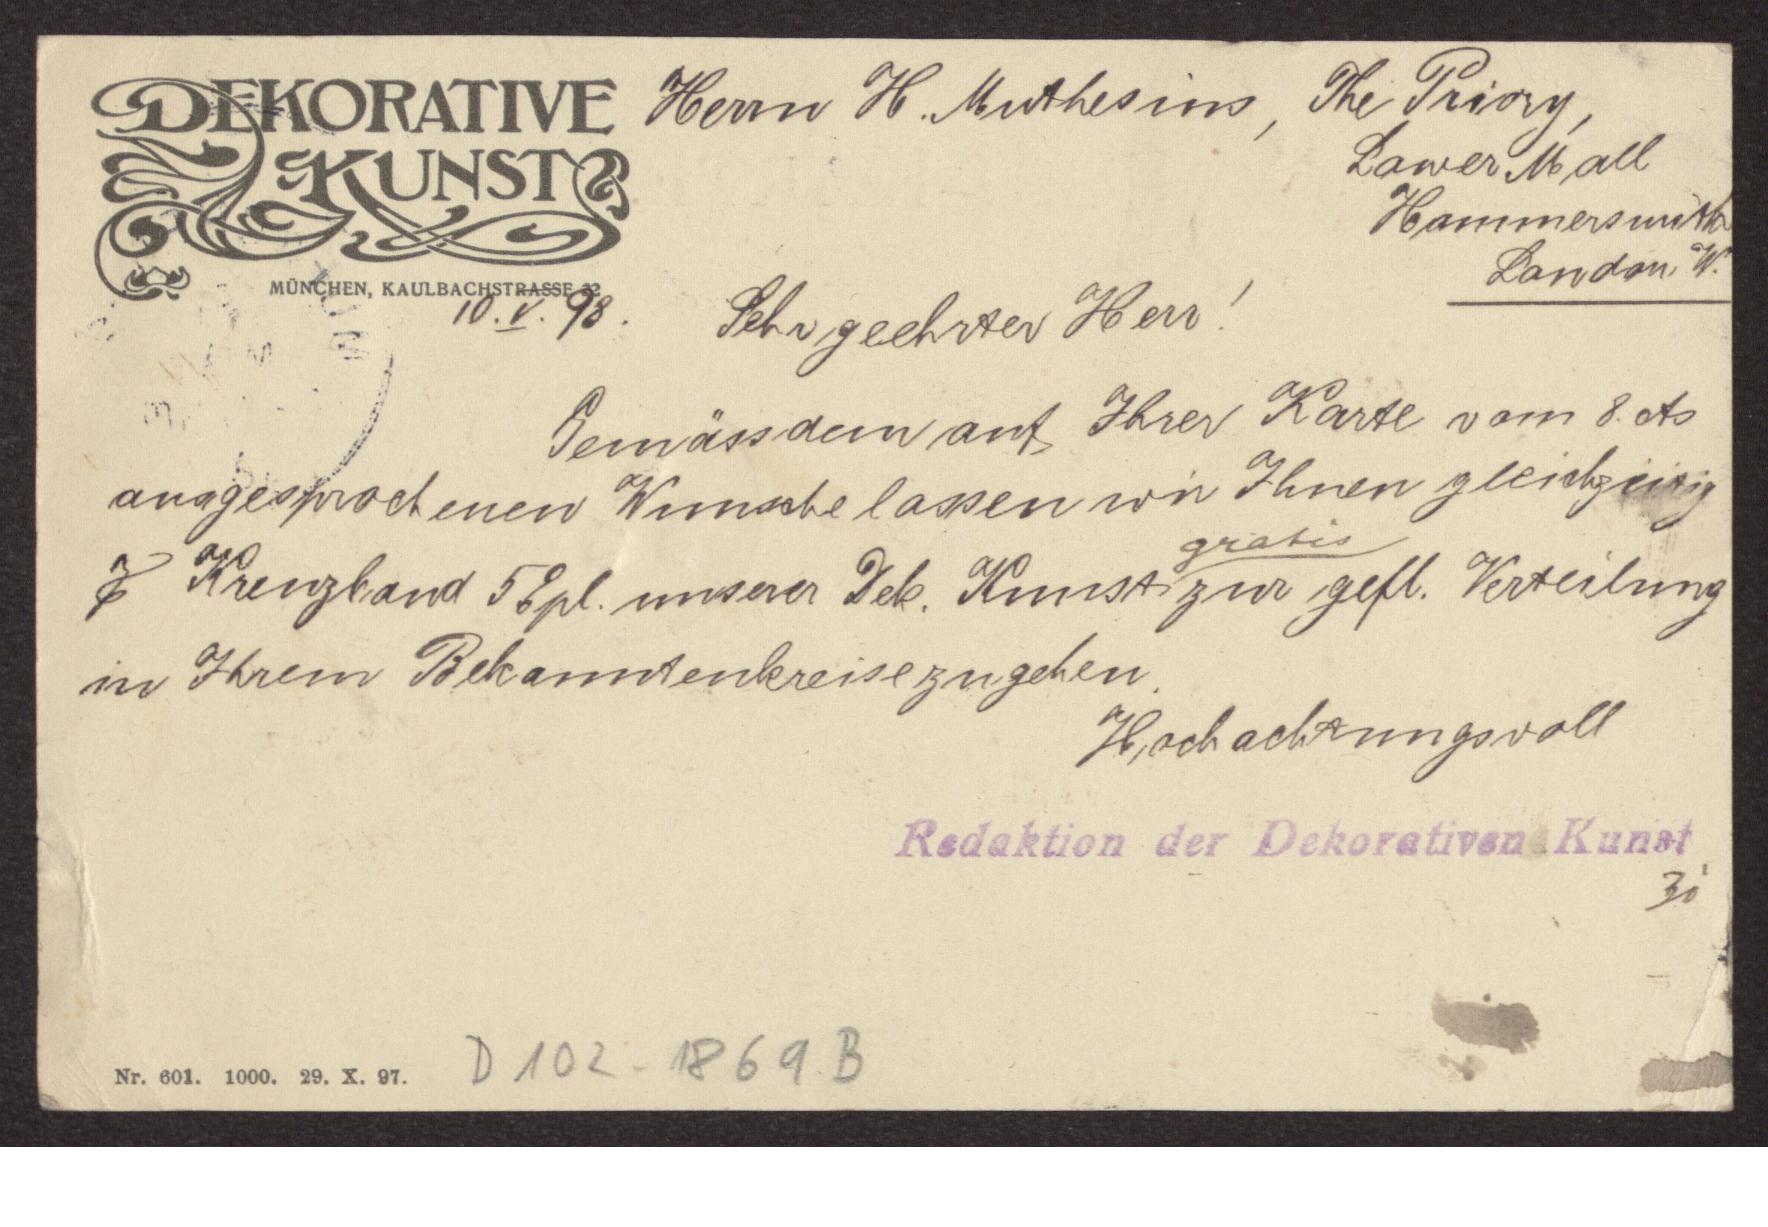 DEKORATIVE
KUNST
MÜNCHEN, KAULBACHSTRASSE 22
Herrn H. Muthesius, The Priory,
Lower Mall
Hammersmith
London W.
10. V. 98.
Sehr geehrter Herr!
Gemäss dem auf Ihrer Karte vom 8. cts
ausgesprochenen Wunsche lassen wir Ihnen gleichzeitig
Kreuzband 5 Expl. unserer Dek. Kunst gratis zur gefl. Verteilung
in Ihrem Bekanntenkreise zugehen.
Hochachtungsvoll
Redaktion der Dekorativen Kunst
Nr. 601. 1000. 29. X. 97.
D 102-1869 B